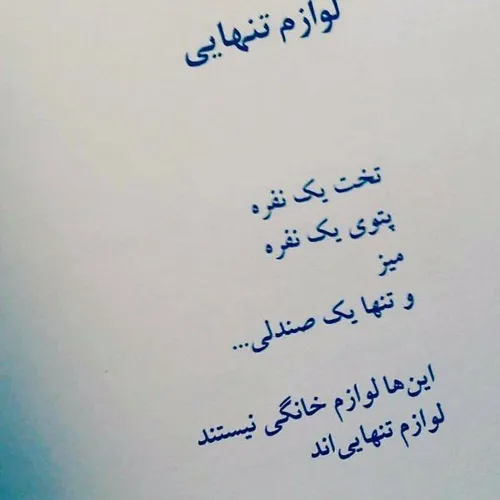 لوازم تنهایی
تخت یک نفره
پتوی یک نفره
میز
و تنها یک صندلی...
این‌ها لوازم خانگی نیستند
لوازم تنهایی‌اند